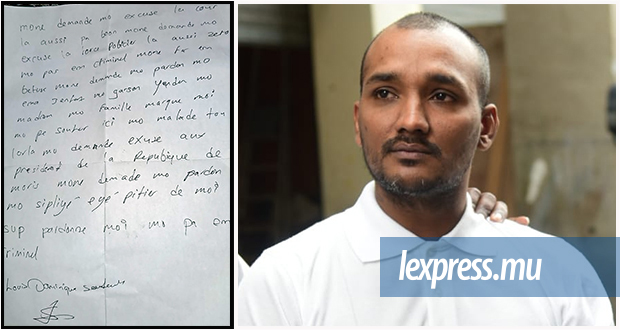 mone demande mo excuse la cour
la aussi pa bon mone demande mo
excuse la force policier la aussi zero
mo par enn criminel mone fer enn
betise mone demande mo pardon mo
ena zenfas ne garson yendon mo
madam mo famille marque moi
mo pe soufer ici mo malade tou
lorla mo demande exuse aux
president de la Republique de
moris mone demade mo pardon
mo sipliyé eyé pitier de moi
sup pardonne moi mo pa enn
criminel
Louis Dominique
lexpress.mu